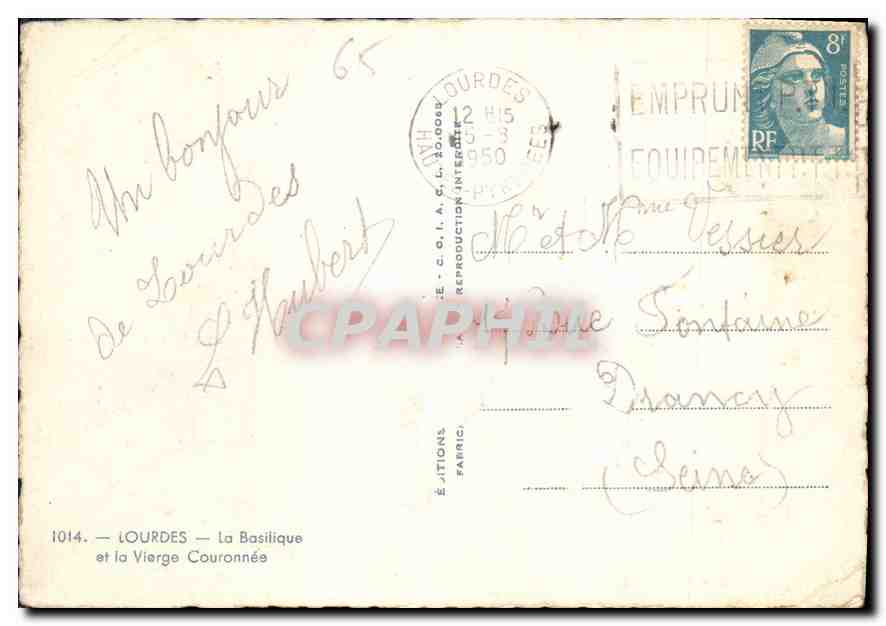 65
Un bonjour
de Lourdes
L Hubert
LOURDES
12 H15
5 - 8
1950
HAU
-PYRENEES
EMPRUN
EQUIPEMENT
8F
POSTES
RF
Mr et Mme Vve Vessier
4 Rue Fontaine
Drancy
(Seine)
ÉDITIONS
CE - C. C. I. A. C. L. 20.0065
FABRIC
REPRODUCTION INTERDITE
CPAPHIL
1014. — LOURDES — La Basilique
et la Vierge Couronnée